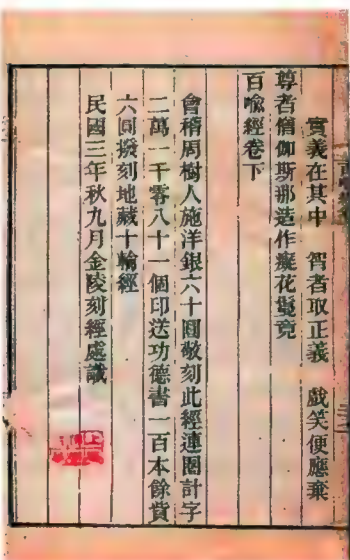 實義在其中　智者取正義　戲笑便應棄
尊者僧伽斯那造作癡花鬘竟
百喩經卷下
會稽周樹人施洋銀六十圓敬刻此經連圈計字
二萬一千零八十一個印送功德書一百本餘貲
六圓撥刻地藏十輪經
民國三年秋九月金陵刻經處識